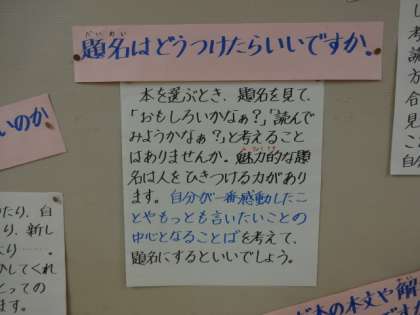 題名はどうつけたらいいですか。
本を選ぶとき、題名を見て、
「おもしろいかなぁ？」「読んで
みようかなぁ？」と考えること
はありませんか。魅力的な題
名は人をひきつける力があり
ます。自分が一番感動したこ
とやもっとも言いたいことの
中心となることばを考えて、
題名にするといいでしょう。
いのか
たり、自
り、新し
より……。
かしてくれ
とっての
ます。
が本の本文や解
ですか